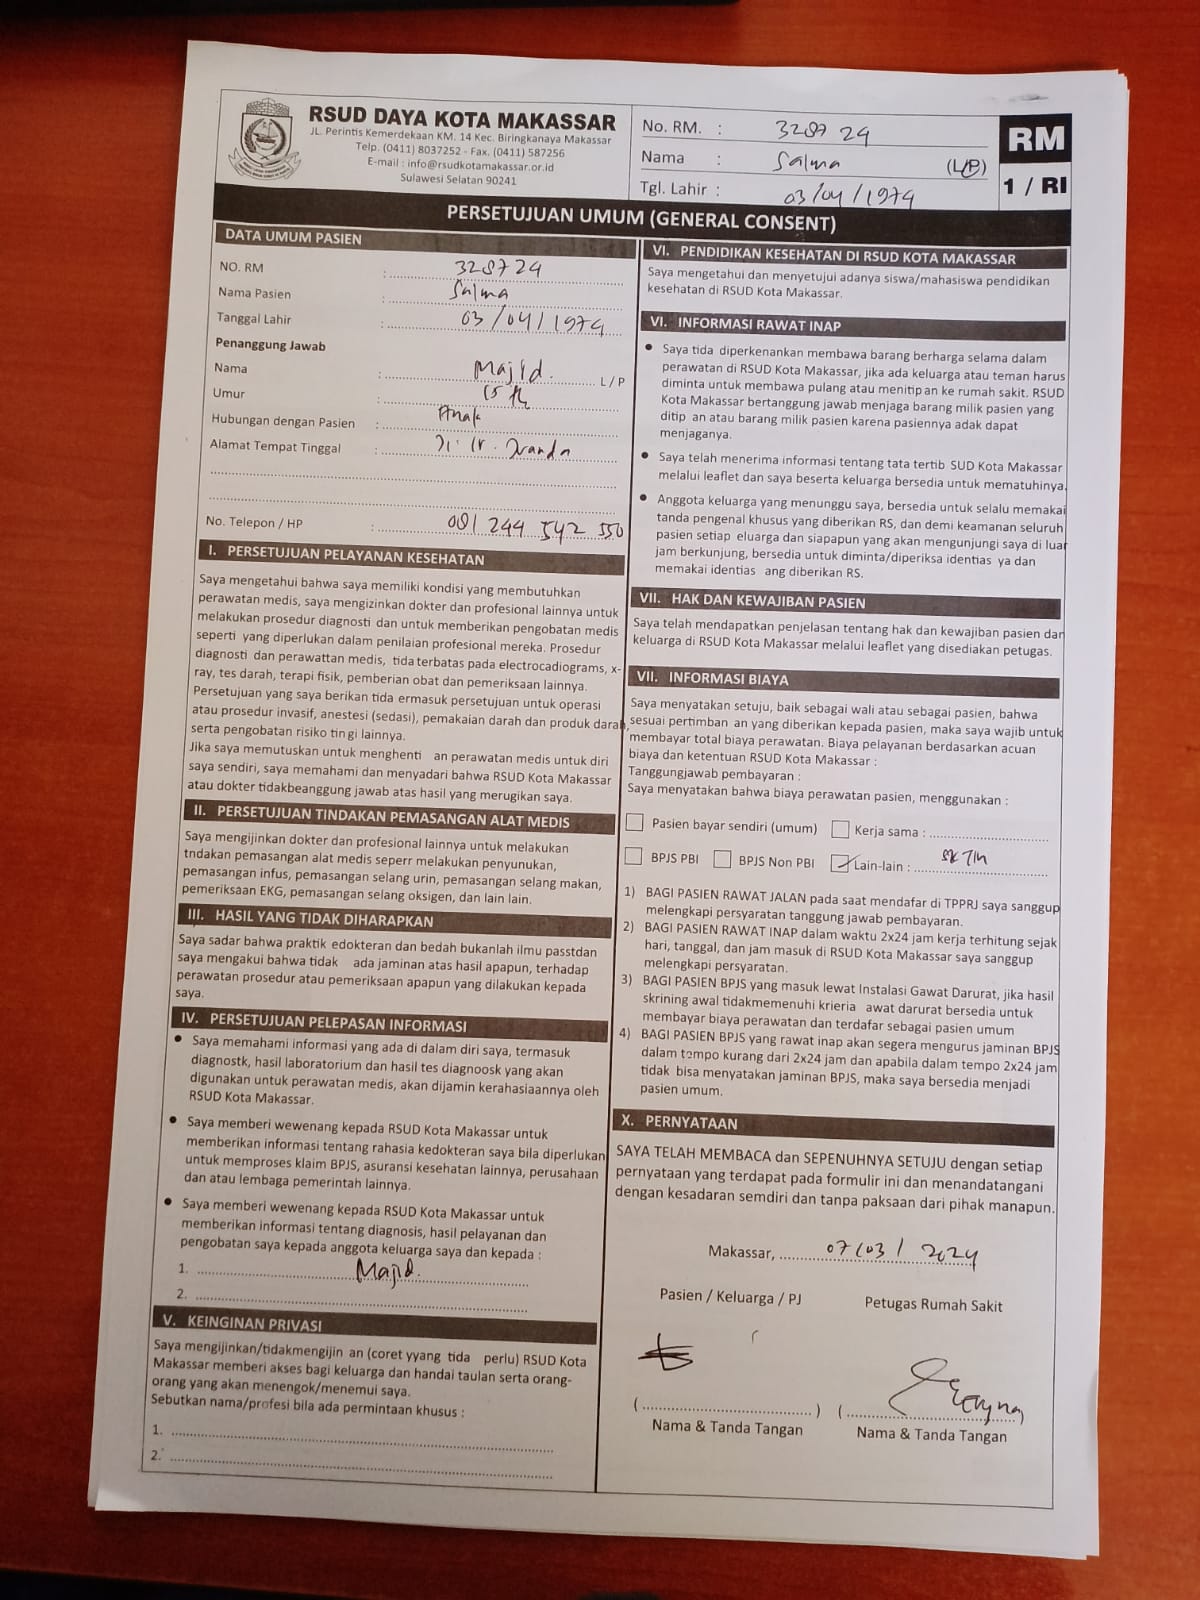 RSUD DAYA KOTA MAKASSAR
JL. Perintis Kemerdekaan KM. 14 Kec. Biringkanaya Makassar
Telp. (0411) 8037252 - Fax. (0411) 587256
E-mail : info@rsudkotamakassar.or.id
Sulawesi Selatan 90241
No. RM. : 328724
Nama : Salma (L/P)
Tgl. Lahir : 03/04/1974
RM
1 / RI
PERSETUJUAN UMUM (GENERAL CONSENT)
DATA UMUM PASIEN
NO. RM : 328724
Nama Pasien : Salma
Tanggal Lahir : 03/04/1974
Penanggung Jawab
Nama : Majid. L / P
Umur : 15 th
Hubungan dengan Pasien : Anak
Alamat Tempat Tinggal : Jl. Ir. Juanda
No. Telepon / HP : 081 244 542 550
I. PERSETUJUAN PELAYANAN KESEHATAN
Saya mengetahui bahwa saya memiliki kondisi yang membutuhkan
perawatan medis, saya mengizinkan dokter dan profesional lainnya untuk
melakukan prosedur diagnosti dan untuk memberikan pengobatan medis
seperti yang diperlukan dalam penilaian profesional mereka. Prosedur
diagnosti dan perawattan medis, tida terbatas pada electrocadiograms, x-
ray, tes darah, terapi fisik, pemberian obat dan pemeriksaan lainnya.
Persetujuan yang saya berikan tida ermasuk persetujuan untuk operasi
atau prosedur invasif, anestesi (sedasi), pemakaian darah dan produk darah,
serta pengobatan risiko tin gi lainnya.
Jika saya memutuskan untuk menghenti an perawatan medis untuk diri
saya sendiri, saya memahami dan menyadari bahwa RSUD Kota Makassar
atau dokter tidakbeanggung jawab atas hasil yang merugikan saya.
II. PERSETUJUAN TINDAKAN PEMASANGAN ALAT MEDIS
Saya mengijinkan dokter dan profesional lainnya untuk melakukan
tndakan pemasangan alat medis seperr melakukan penyunukan,
pemasangan infus, pemasangan selang urin, pemasangan selang makan,
pemeriksaan EKG, pemasangan selang oksigen, dan lain lain.
III. HASIL YANG TIDAK DIHARAPKAN
Saya sadar bahwa praktik edokteran dan bedah bukanlah ilmu passtdan
saya mengakui bahwa tidak ada jaminan atas hasil apapun, terhadap
perawatan prosedur atau pemeriksaan apapun yang dilakukan kepada
saya.
IV. PERSETUJUAN PELEPASAN INFORMASI
• Saya memahami informasi yang ada di dalam diri saya, termasuk
diagnostk, hasil laboratorium dan hasil tes diagnoosk yang akan
digunakan untuk perawatan medis, akan dijamin kerahasiaannya oleh
RSUD Kota Makassar.
• Saya memberi wewenang kepada RSUD Kota Makassar untuk
memberikan informasi tentang rahasia kedokteran saya bila diperlukan
untuk memproses klaim BPJS, asuransi kesehatan lainnya, perusahaan
dan atau lembaga pemerintah lainnya.
• Saya memberi wewenang kepada RSUD Kota Makassar untuk
memberikan informasi tentang diagnosis, hasil pelayanan dan
pengobatan saya kepada anggota keluarga saya dan kepada :
1. Majid.
2.
V. KEINGINAN PRIVASI
Saya mengijinkan/tidakmengijin an (coret yyang tida perlu) RSUD Kota
Makassar memberi akses bagi keluarga dan handai taulan serta orang-
orang yang akan menengok/menemui saya.
Sebutkan nama/profesi bila ada permintaan khusus :
1.
2.
VI. PENDIDIKAN KESEHATAN DI RSUD KOTA MAKASSAR
Saya mengetahui dan menyetujui adanya siswa/mahasiswa pendidikan
kesehatan di RSUD Kota Makassar.
VI. INFORMASI RAWAT INAP
• Saya tida diperkenankan membawa barang berharga selama dalam
perawatan di RSUD Kota Makassar, jika ada keluarga atau teman harus
diminta untuk membawa pulang atau menitip an ke rumah sakit. RSUD
Kota Makassar bertanggung jawab menjaga barang milik pasien yang
ditip an atau barang milik pasien karena pasiennya adak dapat
menjaganya.
• Saya telah menerima informasi tentang tata tertib SUD Kota Makassar
melalui leaflet dan saya beserta keluarga bersedia untuk mematuhinya.
• Anggota keluarga yang menunggu saya, bersedia untuk selalu memakai
tanda pengenal khusus yang diberikan RS, dan demi keamanan seluruh
pasien setiap eluarga dan siapapun yang akan mengunjungi saya di luar
jam berkunjung, bersedia untuk diminta/diperiksa identias ya dan
memakai identias ang diberikan RS.
VII. HAK DAN KEWAJIBAN PASIEN
Saya telah mendapatkan penjelasan tentang hak dan kewajiban pasien dan
keluarga di RSUD Kota Makassar melalui leaflet yang disediakan petugas.
VII. INFORMASI BIAYA
Saya menyatakan setuju, baik sebagai wali atau sebagai pasien, bahwa
sesuai pertimban an yang diberikan kepada pasien, maka saya wajib untuk
membayar total biaya perawatan. Biaya pelayanan berdasarkan acuan
biaya dan ketentuan RSUD Kota Makassar :
Tanggungjawab pembayaran :
Saya menyatakan bahwa biaya perawatan pasien, menggunakan :
Pasien bayar sendiri (umum) Kerja sama :
BPJS PBI BPJS Non PBI Lain-lain :
1) BAGI PASIEN RAWAT JALAN pada saat mendafar di TPPRJ saya sanggup
melengkapi persyaratan tanggung jawab pembayaran.
2) BAGI PASIEN RAWAT INAP dalam waktu 2x24 jam kerja terhitung sejak
hari, tanggal, dan jam masuk di RSUD Kota Makassar saya sanggup
melengkapi persyaratan.
3) BAGI PASIEN BPJS yang masuk lewat Instalasi Gawat Darurat, jika hasil
skrining awal tidakmemenuhi krieria awat darurat bersedia untuk
membayar biaya perawatan dan terdafar sebagai pasien umum
4) BAGI PASIEN BPJS yang rawat inap akan segera mengurus jaminan BPJS
dalam tempo kurang dari 2x24 jam dan apabila dalam tempo 2x24 jam
tidak bisa menyatakan jaminan BPJS, maka saya bersedia menjadi
pasien umum.
X. PERNYATAAN
SAYA TELAH MEMBACA dan SEPENUHNYA SETUJU dengan setiap
pernyataan yang terdapat pada formulir ini dan menandatangani
dengan kesadaran semdiri dan tanpa paksaan dari pihak manapun.
Makassar, 07/03/2024
Pasien / Keluarga / PJ Petugas Rumah Sakit
Nama & Tanda Tangan Nama & Tanda Tangan